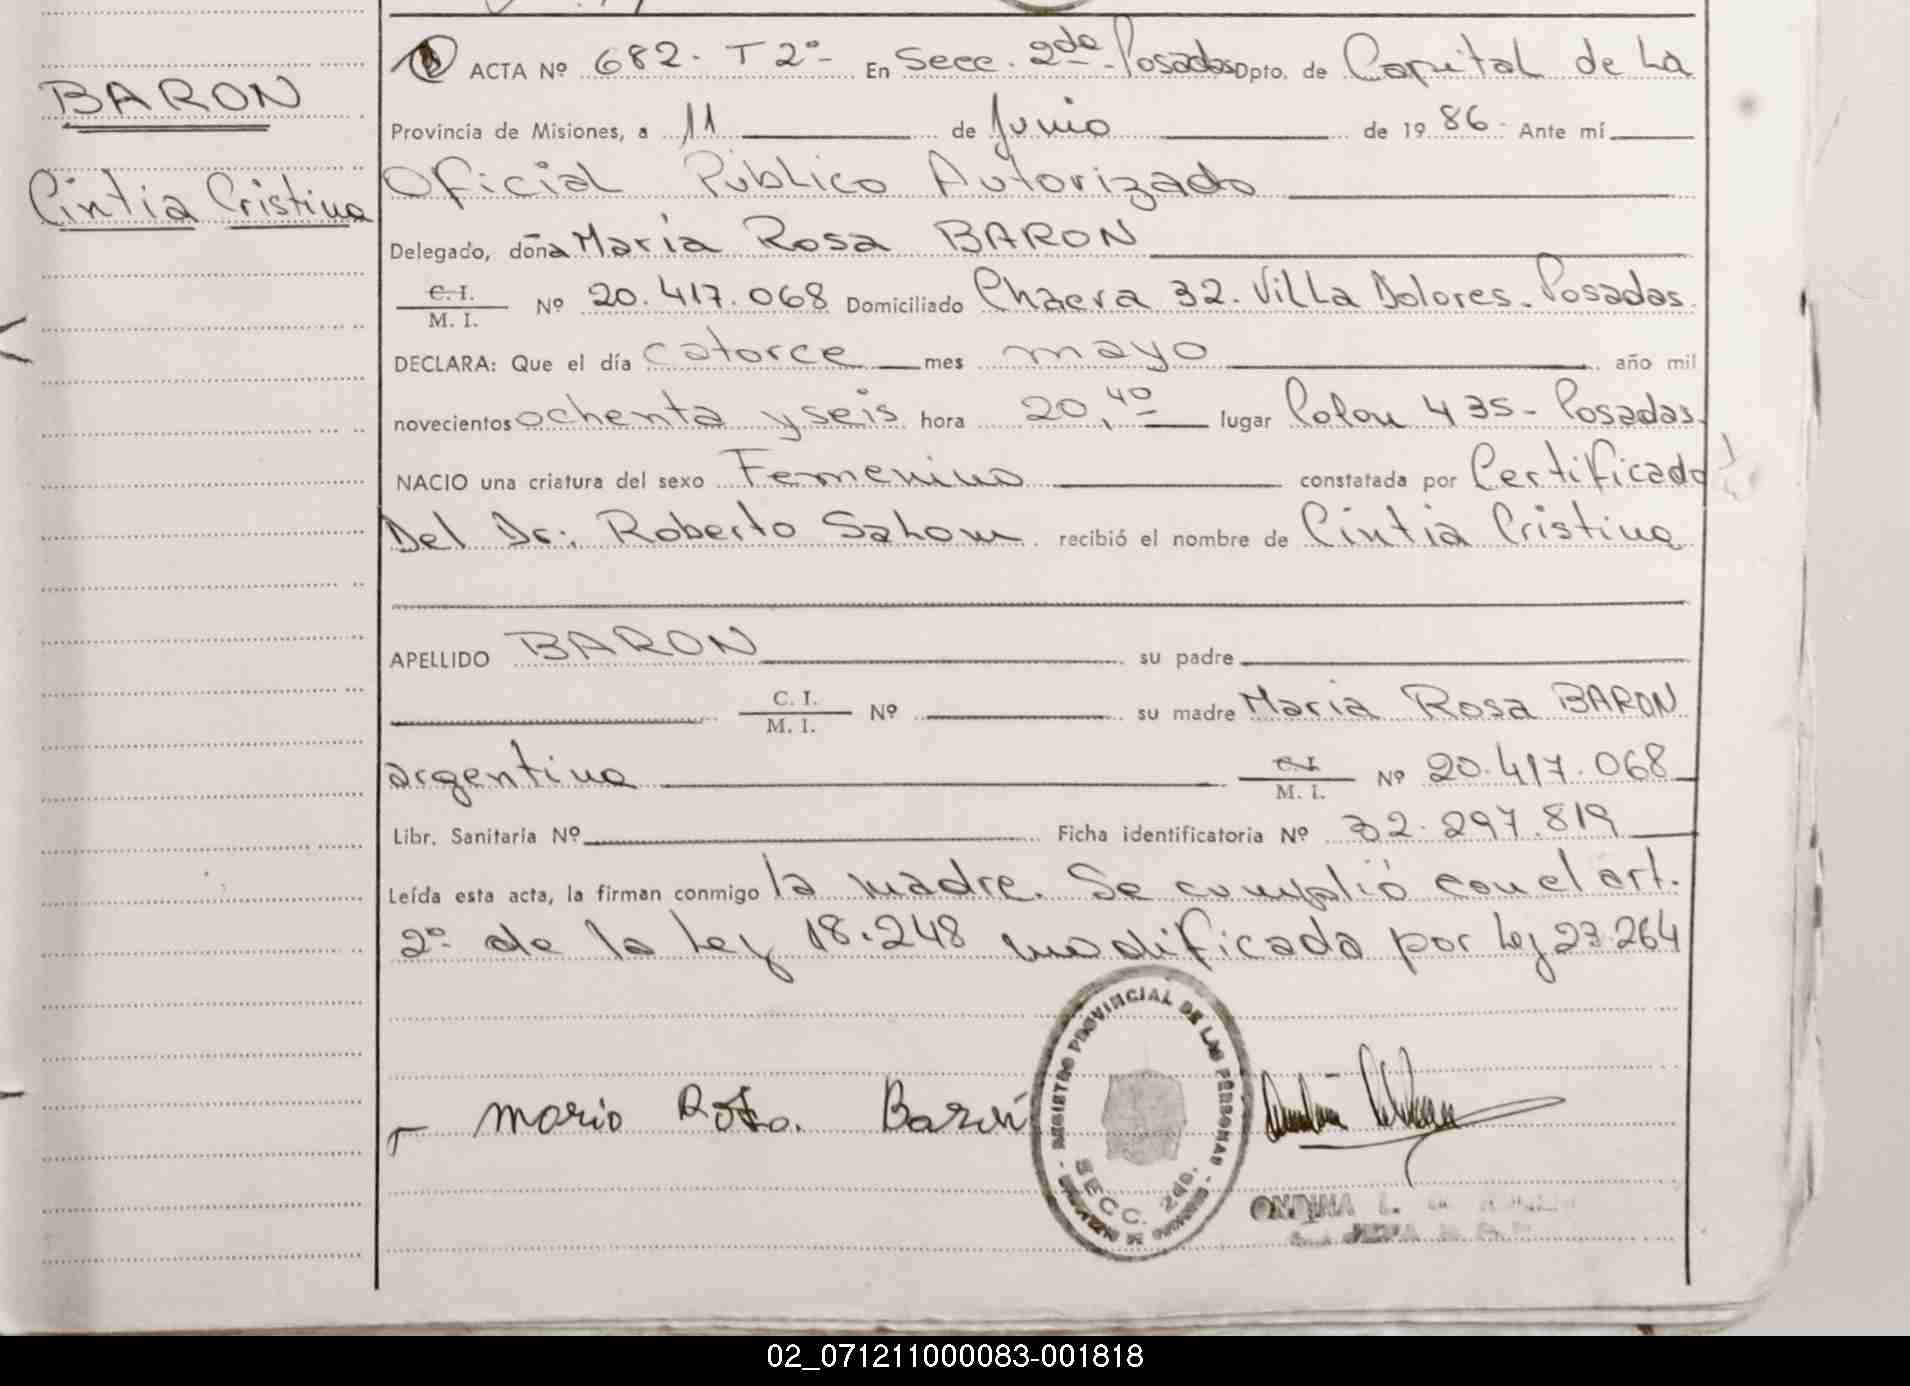 BARON
Cintia Cristina
ACTA Nº 682. T 2º- En Secc. 2da Posadas Dpto. de Capital de La
Provincia de Misiones, a 11 de Junio de 1986- Ante mí
Oficial Público Autorizado
Delegado, doña María Rosa BARON
C. I.
M. I. Nº 20.417.068 Domiciliado Chacra 32. Villa Dolores. Posadas.
DECLARA: Que el día catorce mes mayo año mil
novecientos ochenta y seis hora 20,40 lugar Colon 435- Posadas.
NACIO una criatura del sexo Femenino constatada por Certificado
Del Dr.: Roberto Sahom recibió el nombre de Cintia Cristina
APELLIDO BARON su padre
C. I.
M. I. Nº su madre María Rosa BARON
argentina C. I.
M. I. Nº 20.417.068
Libr. Sanitaria Nº Ficha identificatoria Nº 32.297.819
Leída esta acta, la firman conmigo la madre. Se cumplió con el art.
2º de la Ley 18.248 modificada por Ley 23.264
Maria Rosa. Barón
REGISTRO PROVINCIAL DE LAS PERSONAS
SECC. 2da.
ONDINA L. de
JEFA
02_071211000083-001818